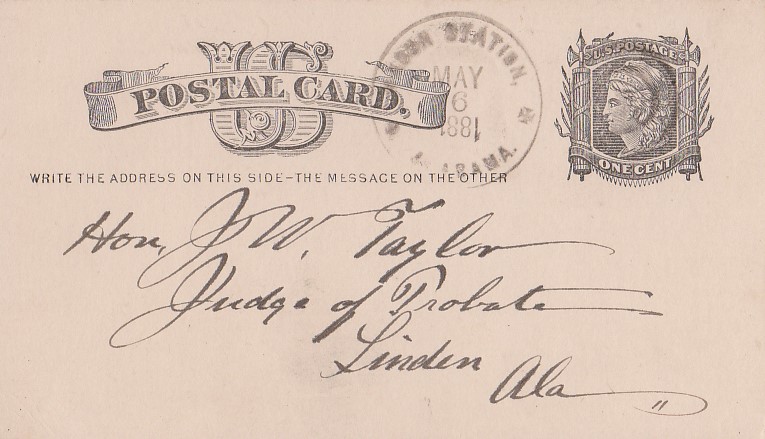 US
POSTAL CARD.
STATION,
MAY
6
1881
ALABAMA.
U.S. POSTAGE
ONE CENT
WRITE THE ADDRESS ON THIS SIDE-THE MESSAGE ON THE OTHER
Hon. J W. Taylor
Judge of Probate
Linden
Ala